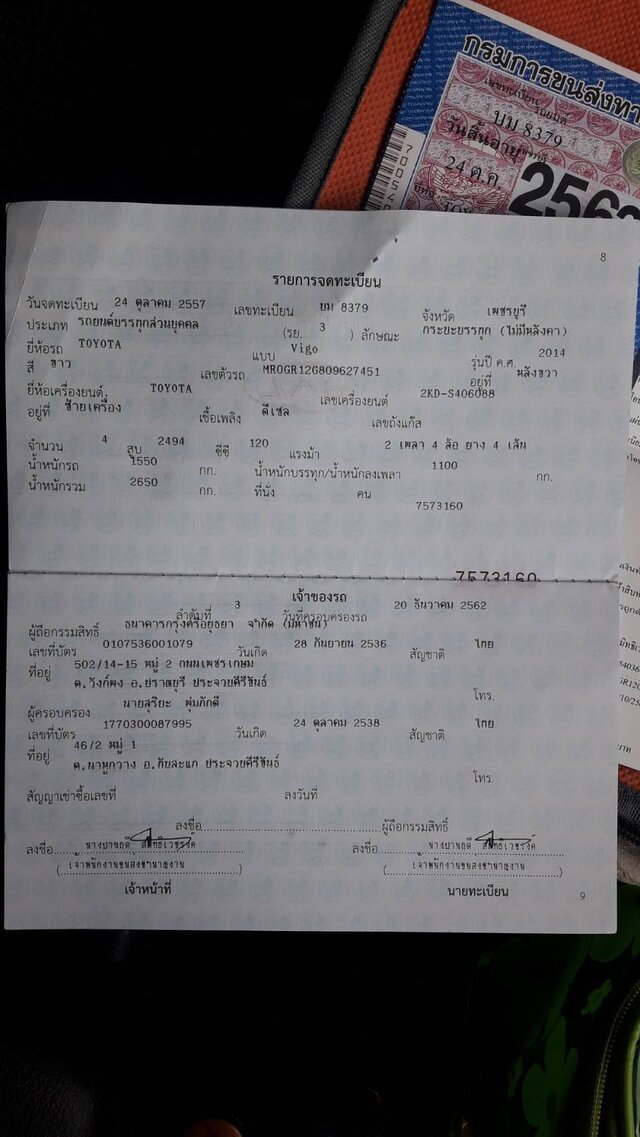 กรมการขนส่งทา
เลขทะเบียน
บม 8379
วันสิ้นอายุ
24 ต.ค.
256
8
รายการจดทะเบียน
วันจดทะเบียน 24 ตุลาคม 2557 เลขทะเบียน บม 8379 จังหวัด เพชรบุรี
ประเภท รถยนต์บรรทุกส่วนบุคคล (รย. 3 ) ลักษณะ กระบะบรรทุก (ไม่มีหลังคา)
ยี่ห้อรถ TOYOTA แบบ Vigo รุ่นปี ค.ศ. 2014
สี ขาว เลขตัวรถ MROGR12G809627451 อยู่ที่ หลังขวา
ยี่ห้อเครื่องยนต์. TOYOTA เลขเครื่องยนต์ 2KD-S406088
อยู่ที่ ซ้ายเครื่อง เชื้อเพลิง ดีเซล เลขถังแก๊ส
จำนวน 4 สูบ 2494 ซีซี 120 แรงม้า 2 เพลา 4 ล้อ ยาง 4 เส้น
น้ำหนักรถ 1550 กก. น้ำหนักบรรทุก/น้ำหนักลงเพลา 1100 กก.
น้ำหนักรวม 2650 กก. ที่นั่ง คน
7573160
7573160
เจ้าของรถ
ลำดับที่ 3 วันที่ครอบครองรถ 20 ธันวาคม 2562
ผู้ถือกรรมสิทธิ์ ธนาคารกรุงศรีอยุธยา จำกัด (มหาชน)
เลขที่บัตร 0107536001079 วันเกิด 28 กันยายน 2536 สัญชาติ ไทย
ที่อยู่ 502/14-15 หมู่ 2 ถนนเพชรเกษม
ต.วังก์พง อ.ปราณบุรี ประจวบคีรีขันธ์
โทร.
ผู้ครอบครอง นายสุริยะ พุ่มภักดี
เลขที่บัตร 1770300087995 วันเกิด 24 ตุลาคม 2538 สัญชาติ ไทย
ที่อยู่ 46/2 หมู่ 1
ต.นาหูกวาง อ.ทับสะแก ประจวบคีรีขันธ์
โทร.
สัญญาเช่าซื้อเลขที่ ลงวันที่
ลงชื่อ ผู้ถือกรรมสิทธิ์
ลงชื่อ นางปานฤดี ลงชื่อ นางปานฤดี
(เจ้าพนักงานขนส่งชำนาญงาน) (เจ้าพนักงานขนส่งชำนาญงาน)
เจ้าหน้าที่ นายทะเบียน
9